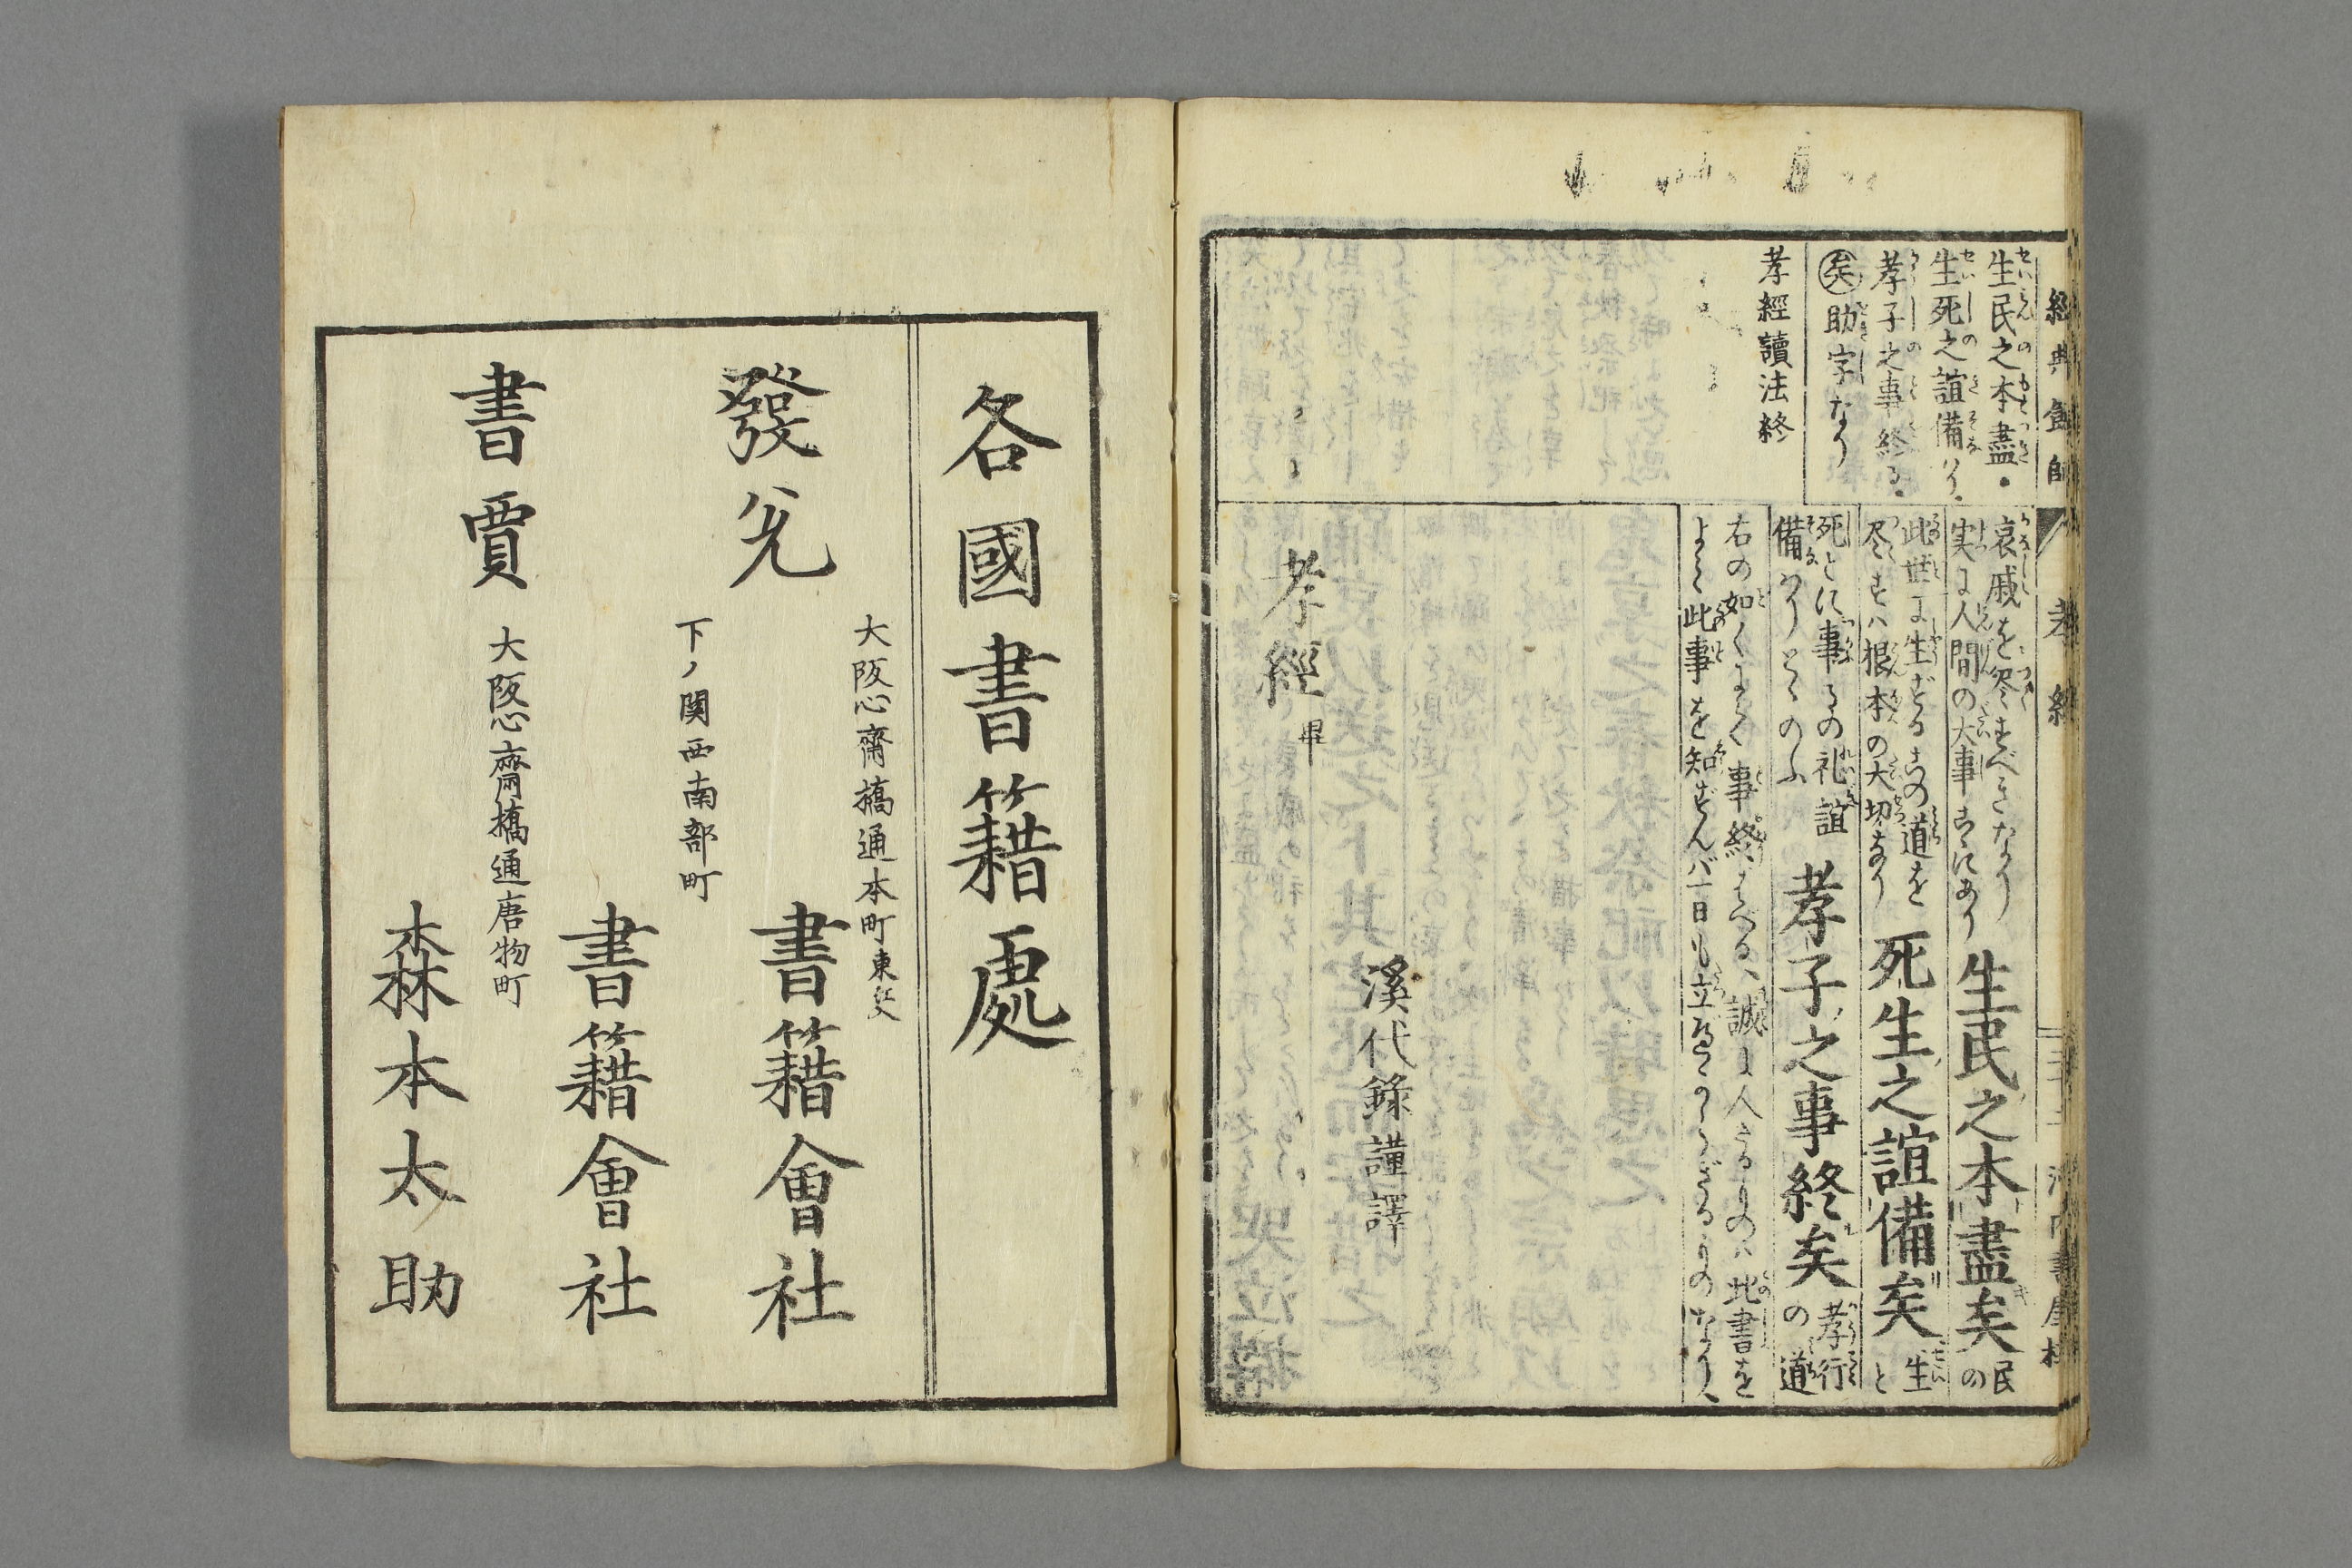 經典餘師
孝經
生民之本盡・
生死之誼備り・
孝子之事終る・
矣助字なり
孝經讀法終
哀戚を尽すべきなり
実に人間の大事こゝにあり
生民之本盡矣
民の
此世に生ずるの道を
尽すハ根本の大切なり
死生之誼備矣
生と
死とに事るの礼誼
備りとゝのふ
孝子之事終矣
孝行の道
右の如くにして事終はべる、誠に人たるものハ此書を
よく此事を知ずんバ一日も立べからざるものなり、
溪代錄謹譯
孝經畢
各國書籍處
發兌
書賈
大阪心齋橋通本町東江入
書籍會社
下ノ関西南部町
書籍會社
大阪心齋橋通唐物町
森本太助